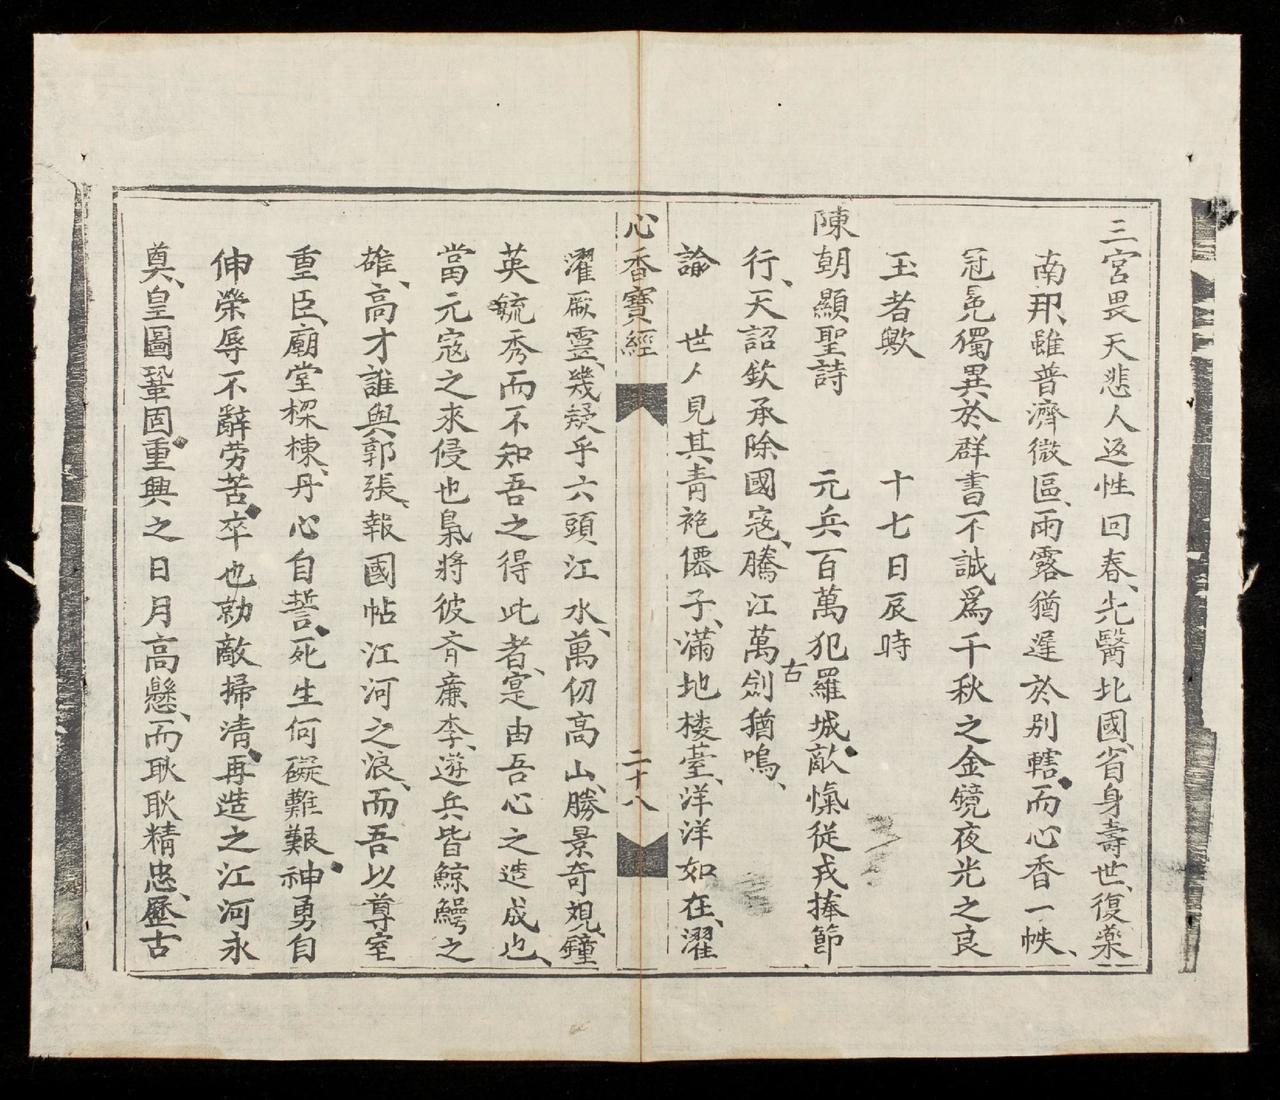 三宮畏天悲人返性回春、先醫北國、省身壽世、復藥
南邦、雖普濟微區、雨露猶遲於别轄、而心香一帙、
冠冕獨異於群書、不誠爲千秋之金鏡夜光之良
玉者歟　　十七日辰時
陳朝顯聖詩　　元兵百萬犯羅城、敵愾從戎捧節
行、天詔欽承除國寇、騰江萬古劍猶鳴、
諭　世人見其青袍僊子、滿地楼臺、洋洋如在、濯
心香寶經　二十八
濯厥靈、幾疑乎六頭江水、萬仞高山、勝景奇觀、鐘
英毓秀而不知吾之得此者、寔由吾心之造成也、
當元寇之來侵也梟將彼夸亷李、遊兵皆鯨鱷之
雄、高才誰與郭張、報國帖江河之浪、而吾以尊室
重臣、廟堂樑棟、丹心自誓、死生何礙難艱、神勇自
伸榮辱不辭劳苦、卒也勍敵掃清、再造之江河永
奠、皇圖鞏固、重興之日月高懸、而耿耿精忠、歷古